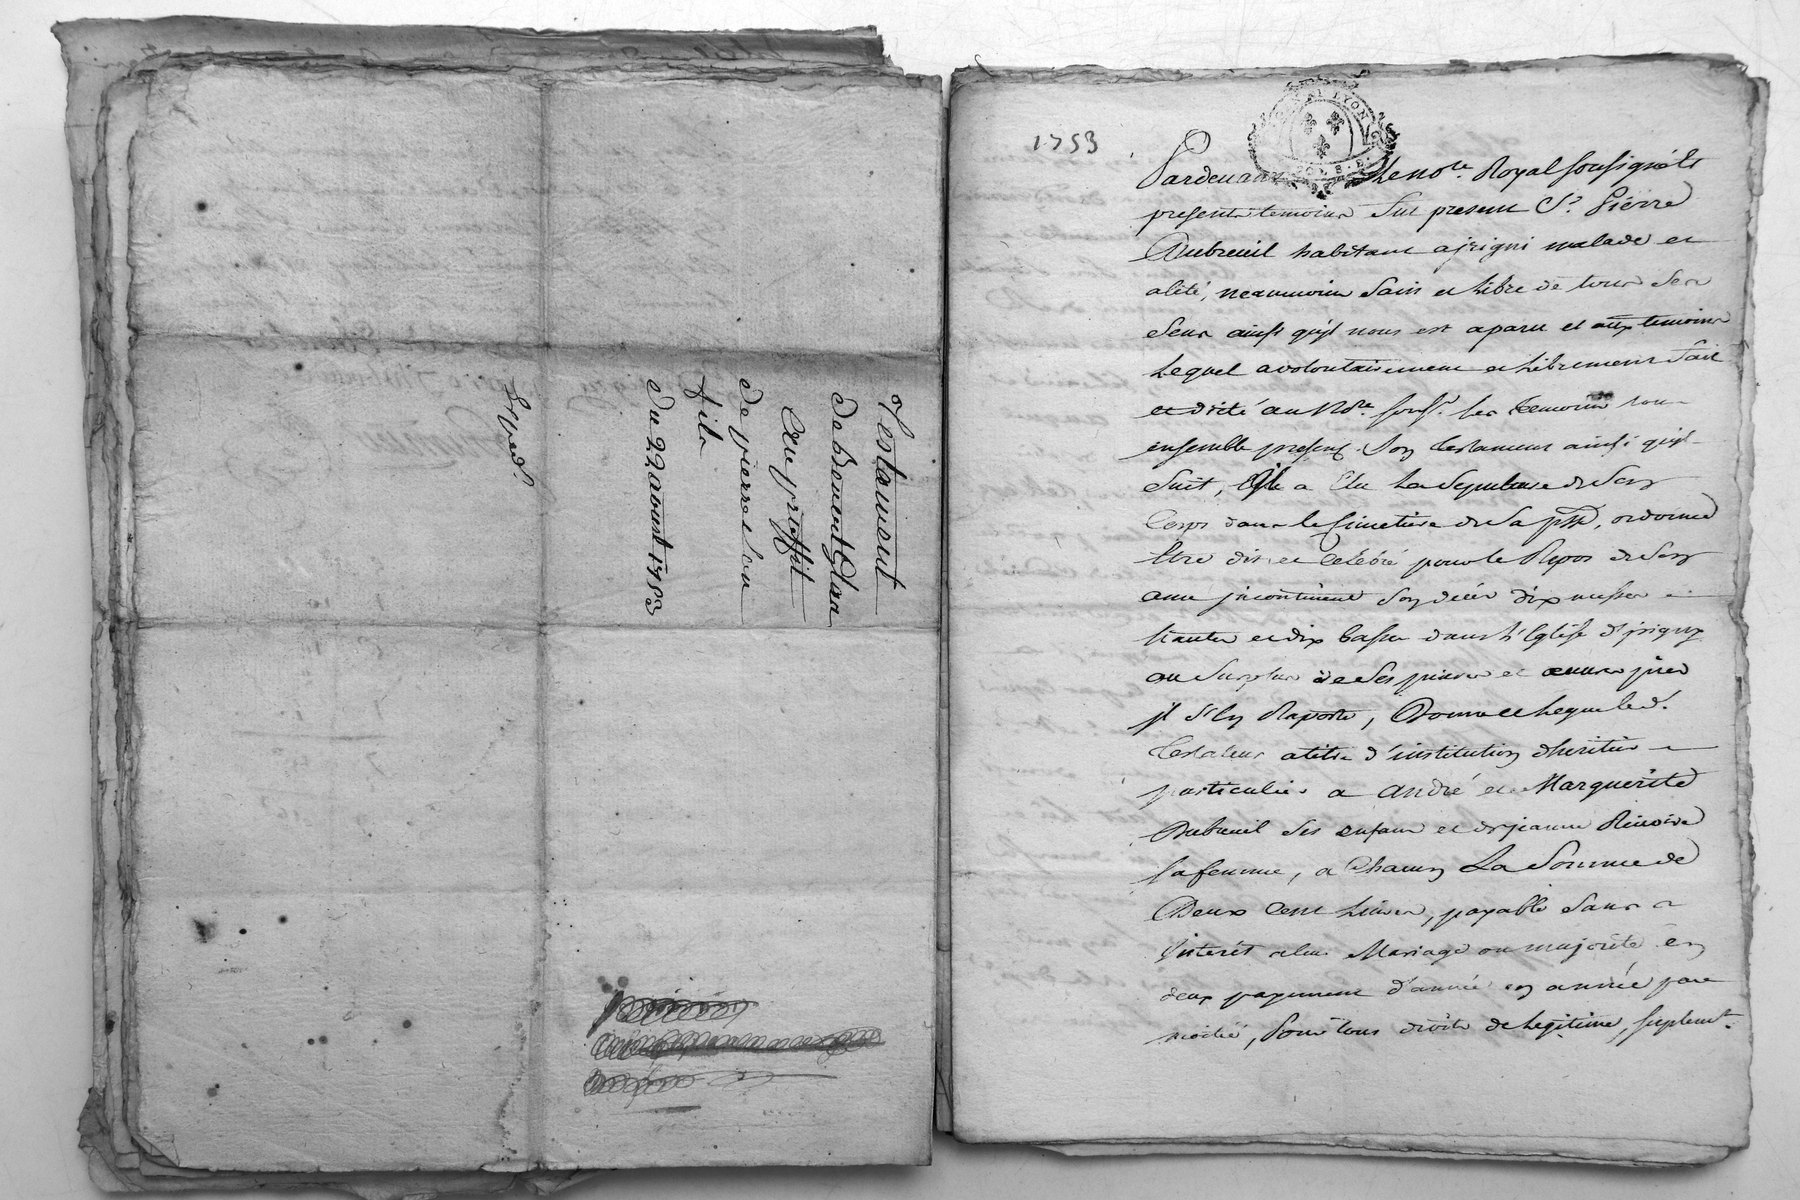 Testament
de benoit Clea
au proffit
de pierre son
fils
du 22 aoust 1753
Exped.
1753
Pardevant Le no.re Royal soussigné et
presents temoins fut present S.r Pierre
Dubreuil habitant a jrigni malade et
alité, neanmoins sain et libre de tous ses
sens ainsi qu'jl nous est aparu et aux temoins
Lequel a volontairement et Librement fait
et dicté au No.re sous.r les temoins tous
ensemble presens son testament ainsi qu'jl
suit, a Elu La sepulture de son
Corps dans le Cimetiere de sa psse, ordonne
Etre dit et Celebré pour le Repos de son
ame jncontinent son decès dix messes
hautes et dix basses dans L'Eglise d'jrigny
au surplus de ses prieres et œuvres pies
jl s'En Raporte, Donne et Legue led.
testateur a titre d'institution d'heritier
particulier a André et Marguerite
Dubreuil ses enfans et de jeanne
sa femme, a Chacun La Somme de
Deux Cent Livres, payable sans
jnterêt a leur Mariage ou majorité en
deux payement d'année en année par
moitié, pour tous droits de Legitime, suplem.t